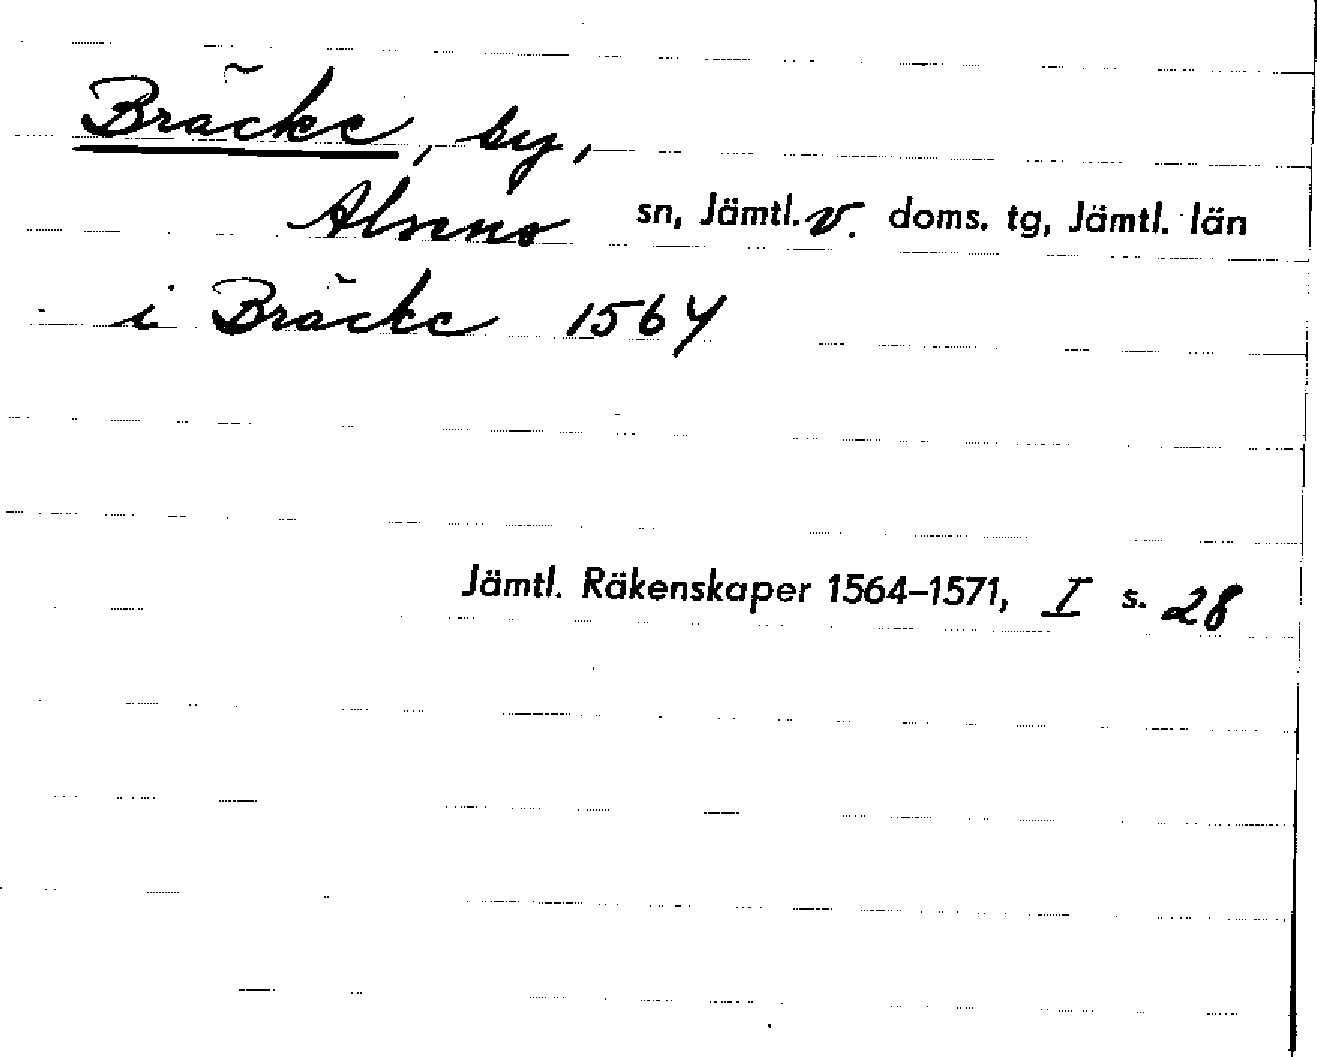 Bräcke, by,
Alsens sn, Jämtl. v. doms. tg, Jämtl. län
i Bräcke 1564
Jämtl. Räkenskaper 1564–1571, I s. 28